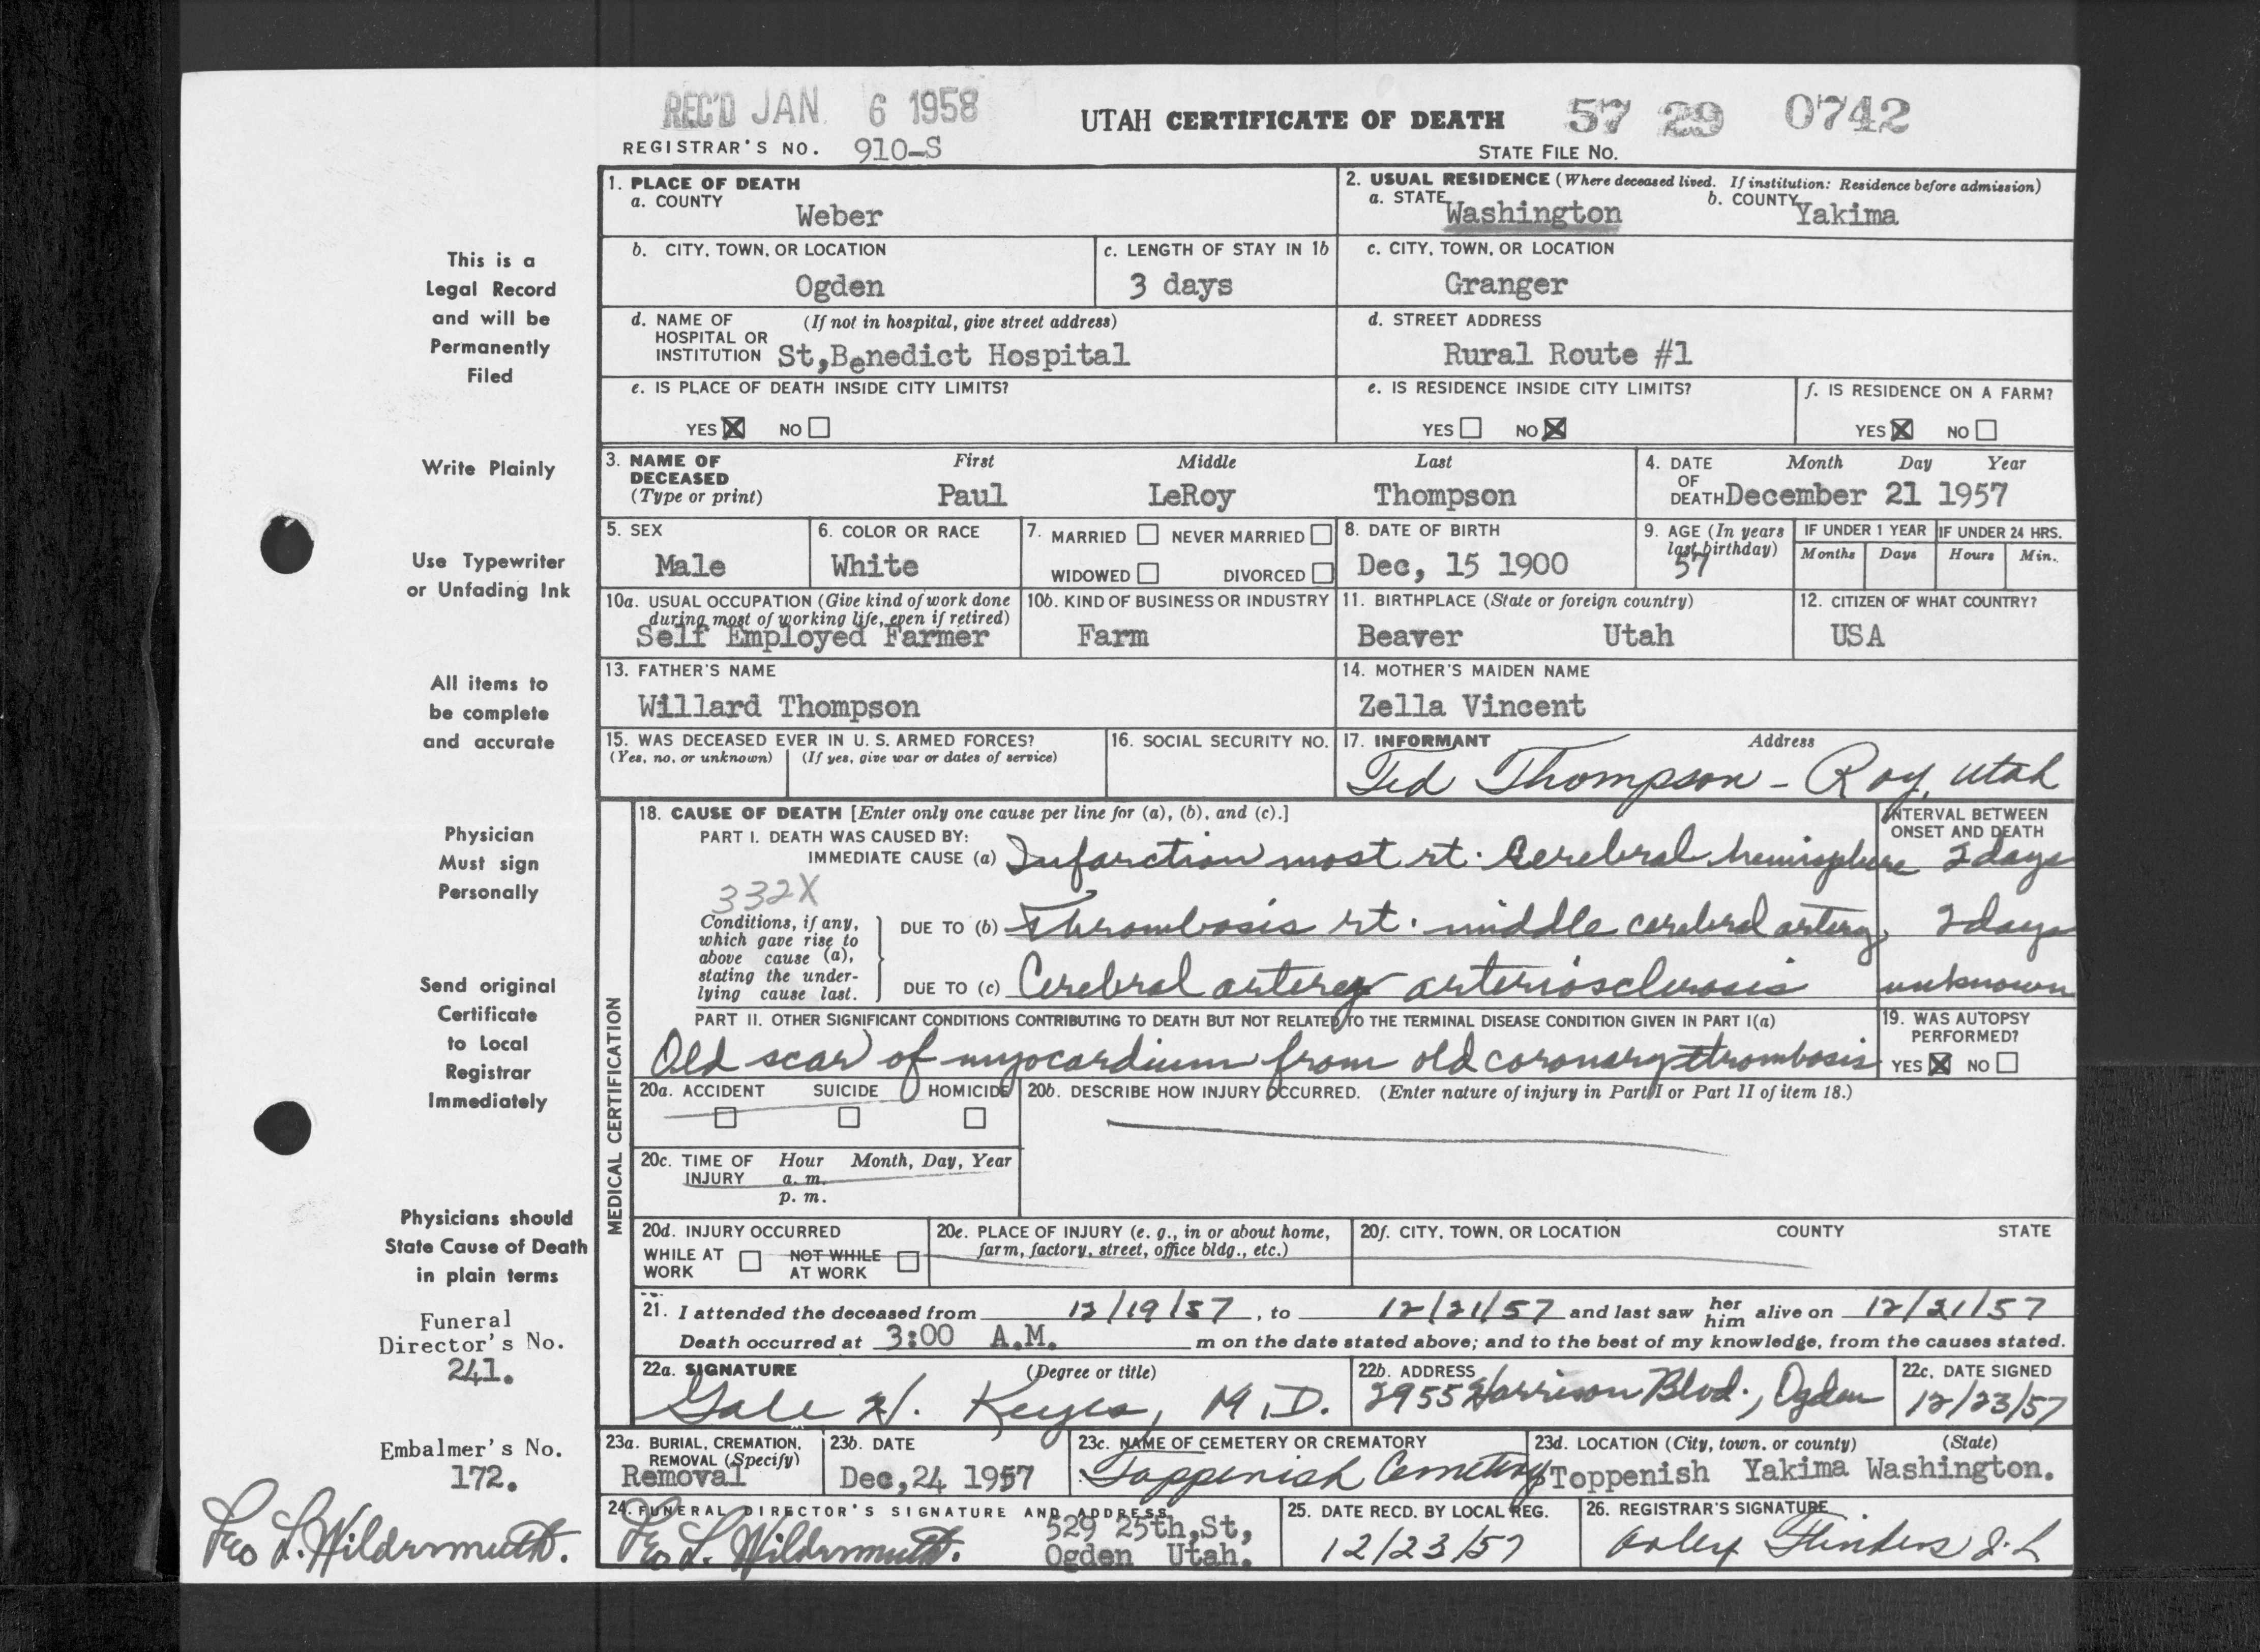 REC'D JAN 6 1958
UTAH CERTIFICATE OF DEATH 57 29 0742
REGISTRAR'S NO. 910-S
STATE FILE NO.
This is a
Legal Record
and will be
Permanently
Filed
Write Plainly
Use Typewriter
or Unfading Ink
All items to
be complete
and accurate
Physician
Must sign
Personally
Send original
Certificate
to Local
Registrar
Immediately
Physicians should
State Cause of Death
in plain terms
Funeral
Director's No.
241.
Embalmer's No.
172.
1. PLACE OF DEATH
a. COUNTY
Weber
2. USUAL RESIDENCE (Where deceased lived. If institution: Residence before admission)
a. STATE Washington b. COUNTY Yakima
b. CITY, TOWN, OR LOCATION
Ogden
c. LENGTH OF STAY IN 1b
3 days
c. CITY, TOWN, OR LOCATION
Granger
d. NAME OF (If not in hospital, give street address)
HOSPITAL OR
INSTITUTION St,Benedict Hospital
d. STREET ADDRESS
Rural Route #1
e. IS PLACE OF DEATH INSIDE CITY LIMITS?
YES ☒ NO ☐
e. IS RESIDENCE INSIDE CITY LIMITS?
YES ☐ NO ☒
f. IS RESIDENCE ON A FARM?
YES ☒ NO ☐
3. NAME OF First Middle Last
DECEASED
(Type or print) Paul LeRoy Thompson
4. DATE Month Day Year
OF
DEATH December 21 1957
5. SEX
Male
6. COLOR OR RACE
White
7. MARRIED ☐ NEVER MARRIED ☐
WIDOWED ☐ DIVORCED ☐
8. DATE OF BIRTH
Dec, 15 1900
9. AGE (In years
last birthday)
57
IF UNDER 1 YEAR
Months Days
IF UNDER 24 HRS.
Hours Min.
10a. USUAL OCCUPATION (Give kind of work done
during most of working life, even if retired)
Self Employed Farmer
10b. KIND OF BUSINESS OR INDUSTRY
Farm
11. BIRTHPLACE (State or foreign country)
Beaver Utah
12. CITIZEN OF WHAT COUNTRY?
USA
13. FATHER'S NAME
Willard Thompson
14. MOTHER'S MAIDEN NAME
Zella Vincent
15. WAS DECEASED EVER IN U. S. ARMED FORCES?
(Yes, no, or unknown) (If yes, give war or dates of service)
16. SOCIAL SECURITY NO.
17. INFORMANT Address
Ted Thompson - Roy, Utah
MEDICAL CERTIFICATION
18. CAUSE OF DEATH [Enter only one cause per line for (a), (b), and (c).]
INTERVAL BETWEEN
ONSET AND DEATH
PART I. DEATH WAS CAUSED BY:
IMMEDIATE CAUSE (a) Infarction most rt. Cerebral hemisphere 2 days
332X
Conditions, if any,
which gave rise to
above cause (a),
stating the under-
lying cause last.
DUE TO (b) Thrombosis rt. middle cerebral artery, 2 days
DUE TO (c) Cerebral artery arteriosclerosis unknown
PART II. OTHER SIGNIFICANT CONDITIONS CONTRIBUTING TO DEATH BUT NOT RELATED TO THE TERMINAL DISEASE CONDITION GIVEN IN PART I(a)
Old scar of myocardium from old coronary thrombosis
19. WAS AUTOPSY
PERFORMED?
YES ☒ NO ☐
20a. ACCIDENT SUICIDE HOMICIDE
☐ ☐ ☐
20b. DESCRIBE HOW INJURY OCCURRED. (Enter nature of injury in Part I or Part II of item 18.)
20c. TIME OF Hour Month, Day, Year
INJURY a. m.
p. m.
20d. INJURY OCCURRED
WHILE AT ☐ NOT WHILE ☐
WORK AT WORK
20e. PLACE OF INJURY (e. g., in or about home,
farm, factory, street, office bldg., etc.)
20f. CITY, TOWN, OR LOCATION COUNTY STATE
21. I attended the deceased from 12/19/57, to 12/21/57 and last saw her him alive on 12/21/57
Death occurred at 3:00 A.M. m on the date stated above; and to the best of my knowledge, from the causes stated.
22a. SIGNATURE (Degree or title)
Gale H. Keyes, M.D.
22b. ADDRESS
2955 Harrison Blvd., Ogden
22c. DATE SIGNED
12/23/57
23a. BURIAL, CREMATION,
REMOVAL (Specify)
Removal
23b. DATE
Dec,24 1957
23c. NAME OF CEMETERY OR CREMATORY
Toppenish Cemetery
23d. LOCATION (City, town, or county) (State)
Toppenish Yakima Washington.
24. FUNERAL DIRECTOR'S SIGNATURE AND ADDRESS
529 25th,St,
Leo L. Hildrmuth. Ogden Utah.
Leo L. Hildrmuth.
25. DATE RECD. BY LOCAL REG.
12/23/57
26. REGISTRAR'S SIGNATURE
Flinders